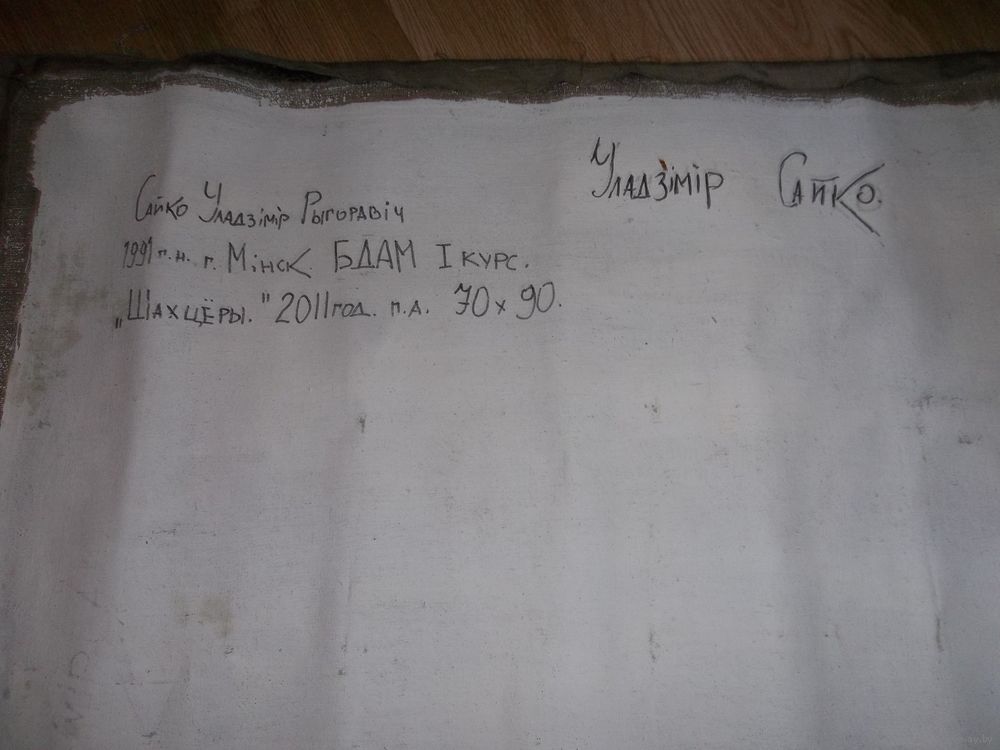 Уладзімір Сайко.
Сайко Уладзімір Рыгоравіч
1991 г.н. г. Мінск. БДАМ I курс.
„Шахцёры." 2011 год. п.а. 70 x 90.